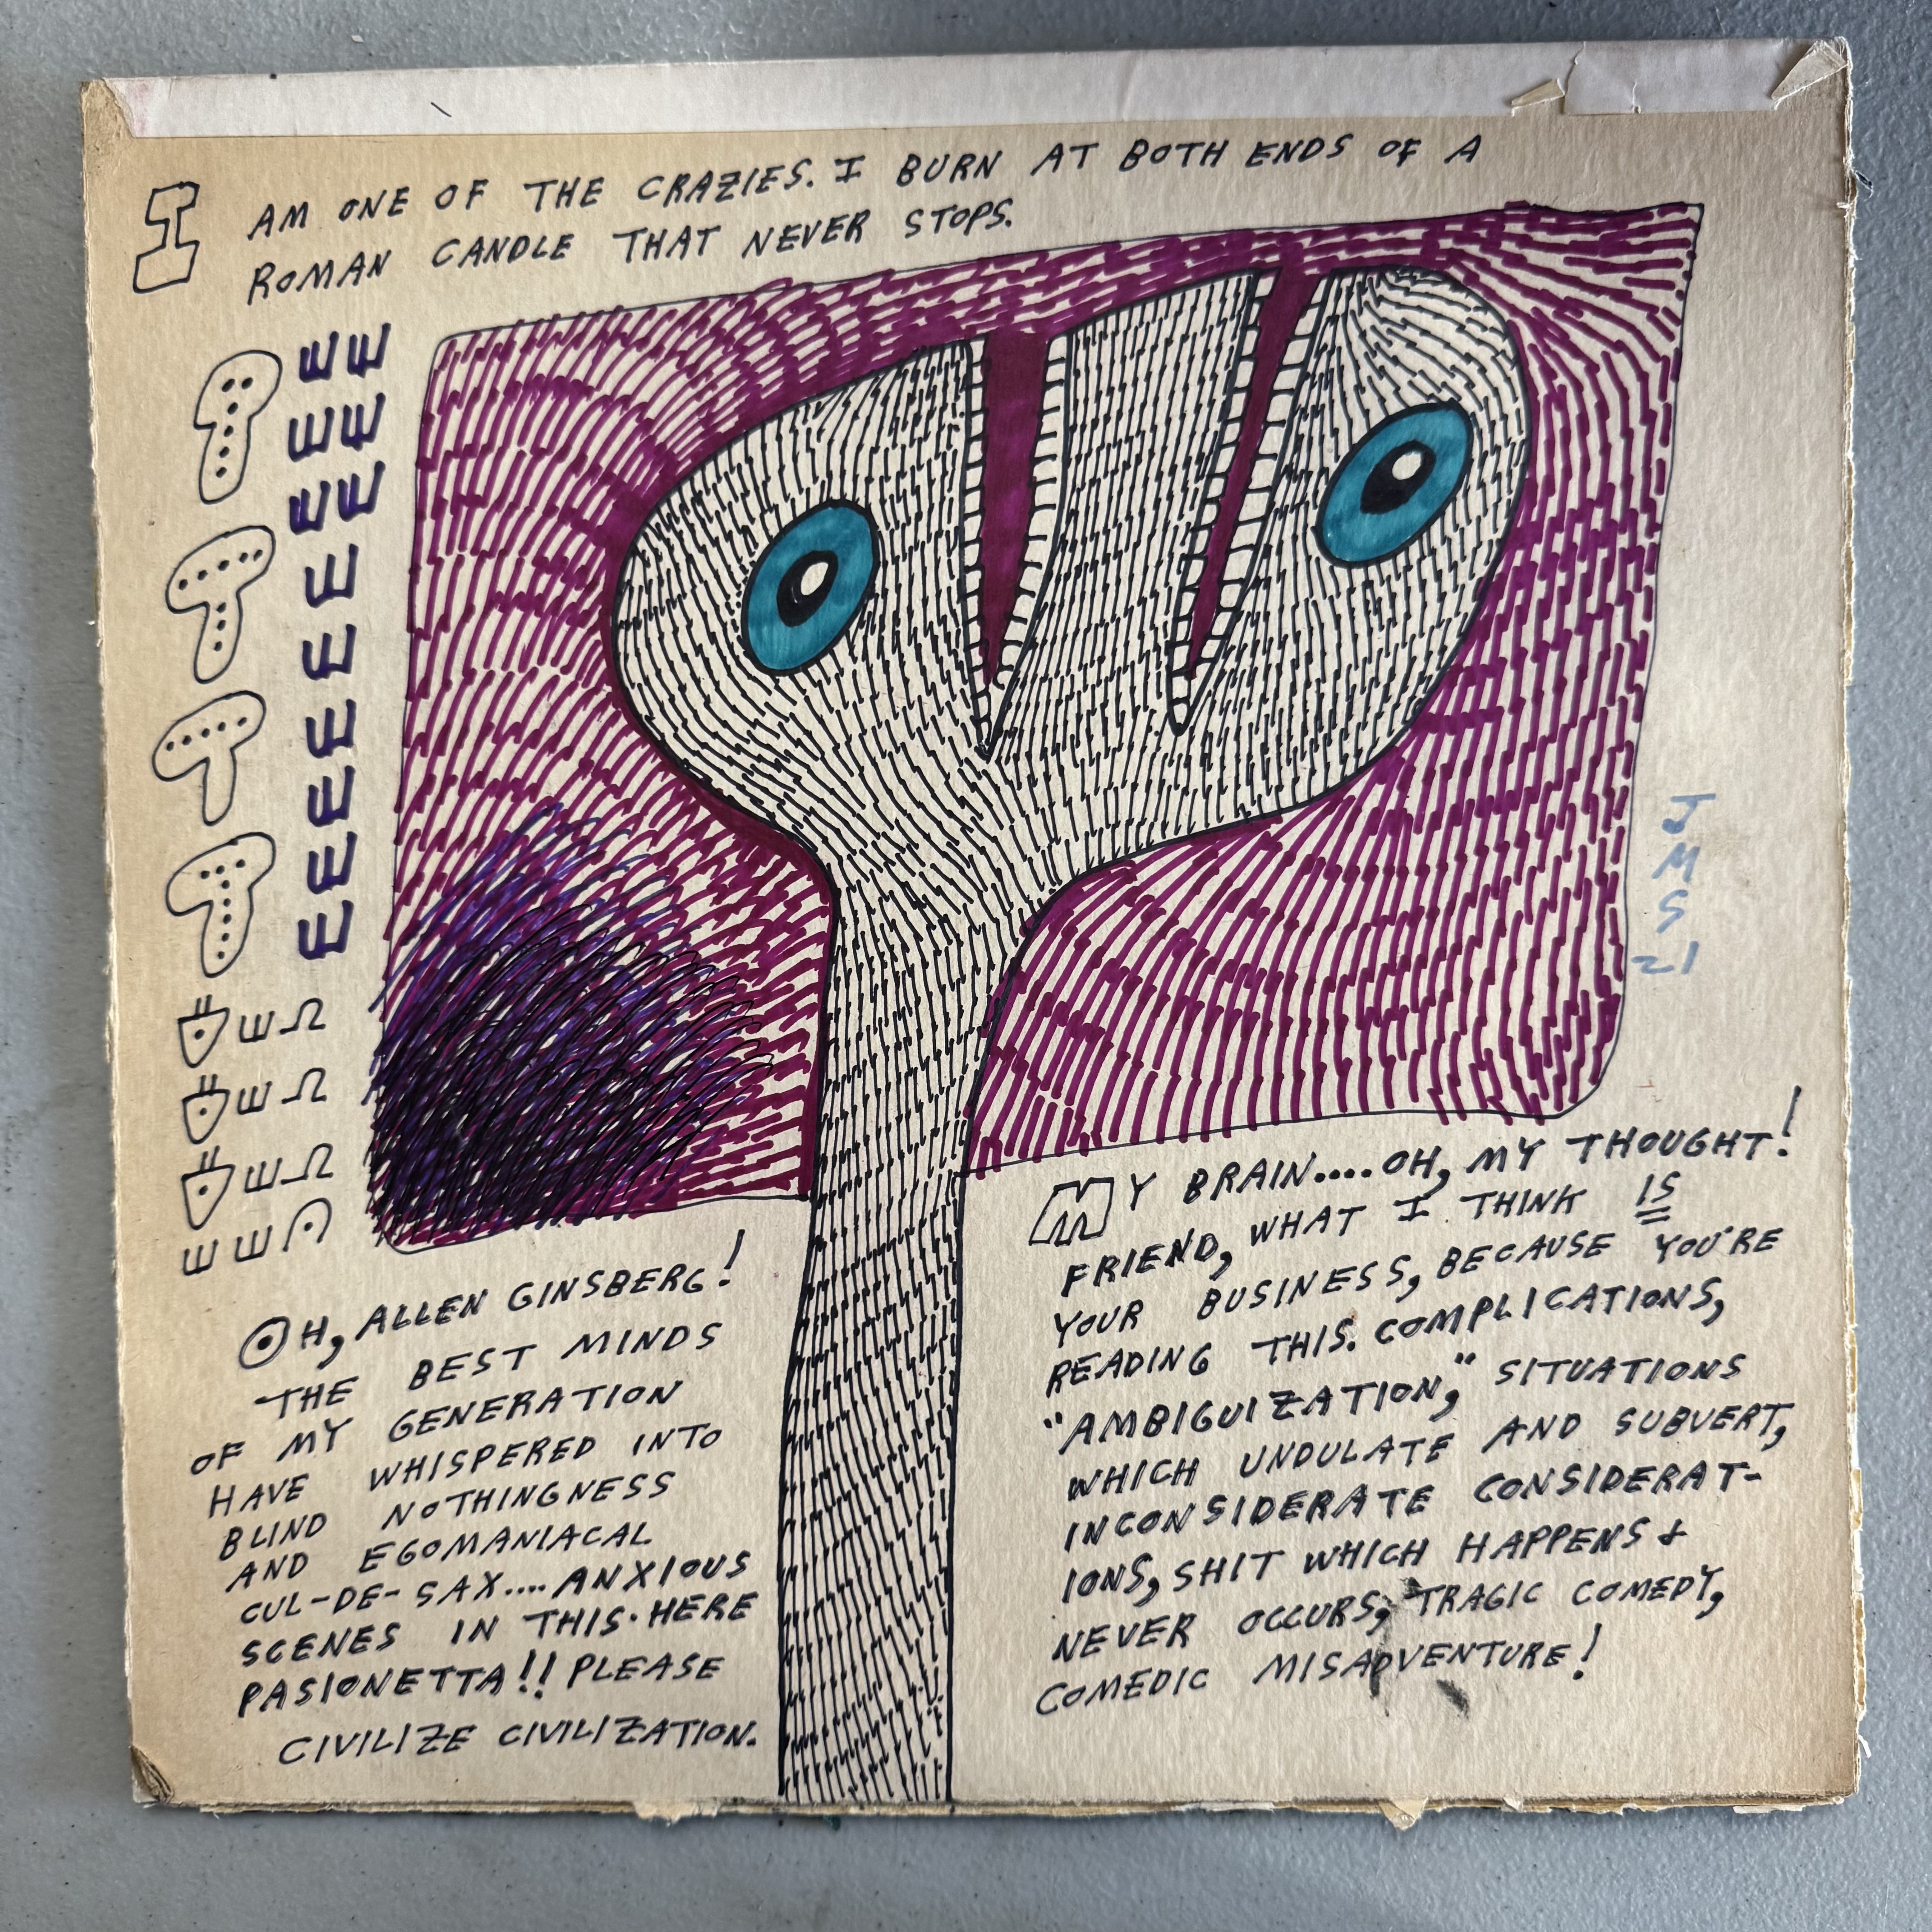 I AM ONE OF THE CRAZIES. I BURN AT BOTH ENDS OF A
ROMAN CANDLE THAT NEVER STOPS.
JMS
21
OH, ALLEN GINSBERG!
THE BEST MINDS
OF MY GENERATION
HAVE WHISPERED INTO
BLIND NOTHINGNESS
AND EGOMANIACAL
CUL-DE-SAX.... ANXIOUS
SCENES IN THIS·HERE
PASIONETTA!! PLEASE
CIVILIZE CIVILIZATION.
MY BRAIN.... OH, MY THOUGHT!
FRIEND, WHAT I THINK IS
YOUR BUSINESS, BECAUSE YOU'RE
READING THIS. COMPLICATIONS,
"AMBIGUIZATION," SITUATIONS
WHICH UNDULATE AND SUBVERT,
INCONSIDERATE CONSIDERAT-
IONS, SHIT WHICH HAPPENS &
NEVER OCCURS, TRAGIC COMEDY,
COMEDIC MISADVENTURE!